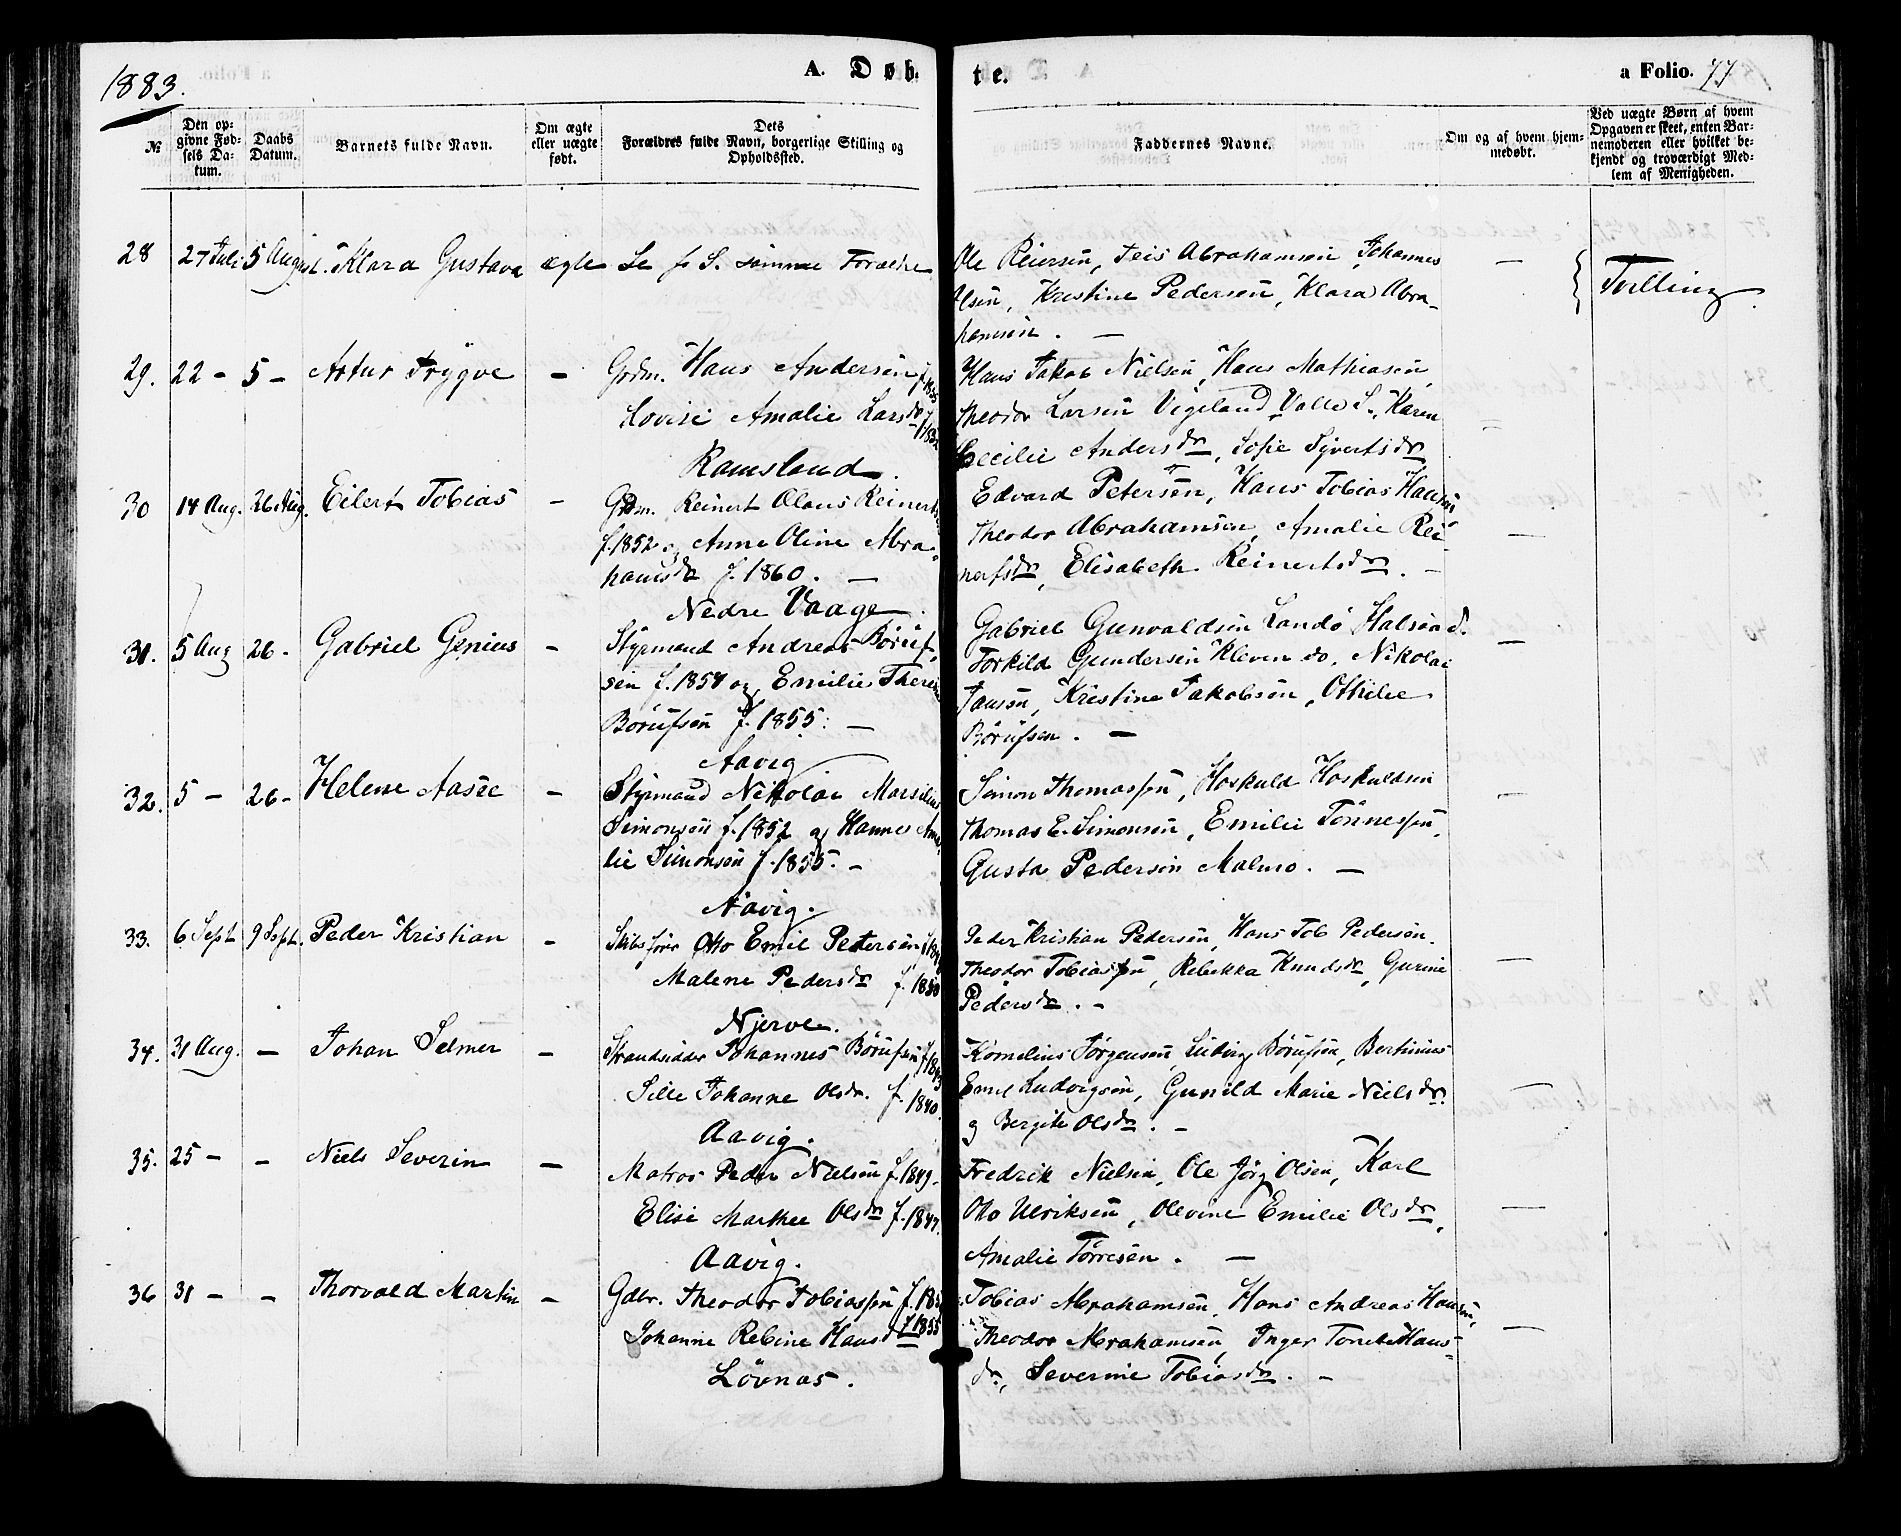 1883.
A. Døbte.
a Folio. 77.
№
Den opgivne Fødsels Datum.
Daabs Datum.
Barnets fulde Navn.
Om ægte eller uægte født.
Dets Forældres fulde Navn, borgerlige Stilling og Opholdssted.
Faddernes Navne.
Om og af hvem hjemmedøbt.
Ved uægte Børn af hvem Opgaven er skeet, enten Barnemoderen eller hvilket bekjendt og troværdigt Medlem af Menigheden.
28 27 Juli 5 August. Klara Gustava ægte Se f S. samme Forældre
Ole Reiersen, Teis Abrahamsen Johannes
Olsen, Kristine Pedersen, Klara Abra-
hamsen. —
Tvilling
29. 22 - 5 - Artur Trygve —
Grdm. Hans Andersen f. 1855
Lovise Amalie Larsdr
Ramsland.
Hans Jakob Nielsen, Hans Mathiasen,
Theodor Larsen Vigeland Valle S., Karen
Cecilie Andersdr, Sofie Syvertsdr
30 14 Aug. 26 Aug. Eilert Tobias —
Grdm. Reinert Olaus Reinerts
f. 1852 og Anne Oline Abra-
hamsdr f. 1860. —
Nedre Vaage.
Edvard Petersen, Hans Tobias Hansen
Theodor Abrahamsen, Amalie Rei-
nertsdr, Elisabeth Reinertsdr. —
31. 5 Aug 26 - Gabriel Genius -
Styrmand Andreas Børuf-
sen f. 1854 og Emilie Therese
Børufsen f. 1855. —
Aavig
Gabriel Gunvaldsen Landø Halsaa S.
Torkild Gundersen Kleven do. Nikolai
Jansen, Kristine Jakobsen, Othilie
Børufsen. —
32. 5 - 26 - Helene Aasee -
Styrmand Nikolai Marselius
Simonsen f. 1852 og Hanne Ama-
lie Simonsen f. 1855. -
Aavig.
Simon Thomassen, Hoskuld Hoskuldsen
Thomas E. Simonsen, Emilie Tønnessen,
Gusta Pedersen Malmo. —
33. 6 Sept 9 Sept. Peder Kristian -
Skibsfører Otto Emil Petersen
Malene Pedersdr f. 1850
Njerve.
Peder Kristian Pedersen, Hans Tob Pedersen.
Theodor Tobiassen, Rebekka Knudsdr, Gurine
Pedersdr. -
34. 31 Aug. — Johan Selmer -
Strandsidder Johannes Børufsen f. 1843
Sille Johanne Olsdr. f. 1840.
Aavig.
Kornelius Jørgensen, Ludvig Børufsen, Bertinius
Emil Ludvigsen, Gunild Marie Nielsdr.
og Bergite Olsdr. -
35. 25 - - Niels Severin —
Matros Peder Nielsen f. 1849.
Elise Marthee Olsdr f. 1847.
Aavig.
Fredrik Nielsen, Ole Jørg Olsen, Karl
Otto Ulriksen, Olevine Emilie Olsdr,
Amalie Tørresen. —
36 31 - - Thorvald Martin -
Gdbr. Theodor Tobiassen
Johanne Rebine Hansdr f. 1855
Løvnas.
Tobias Abrahamsen, Hans Andreas Hansen,
Theodor Abrahamsen, Inger Tomine Hans-
dr, Severine Tobiasdr. -